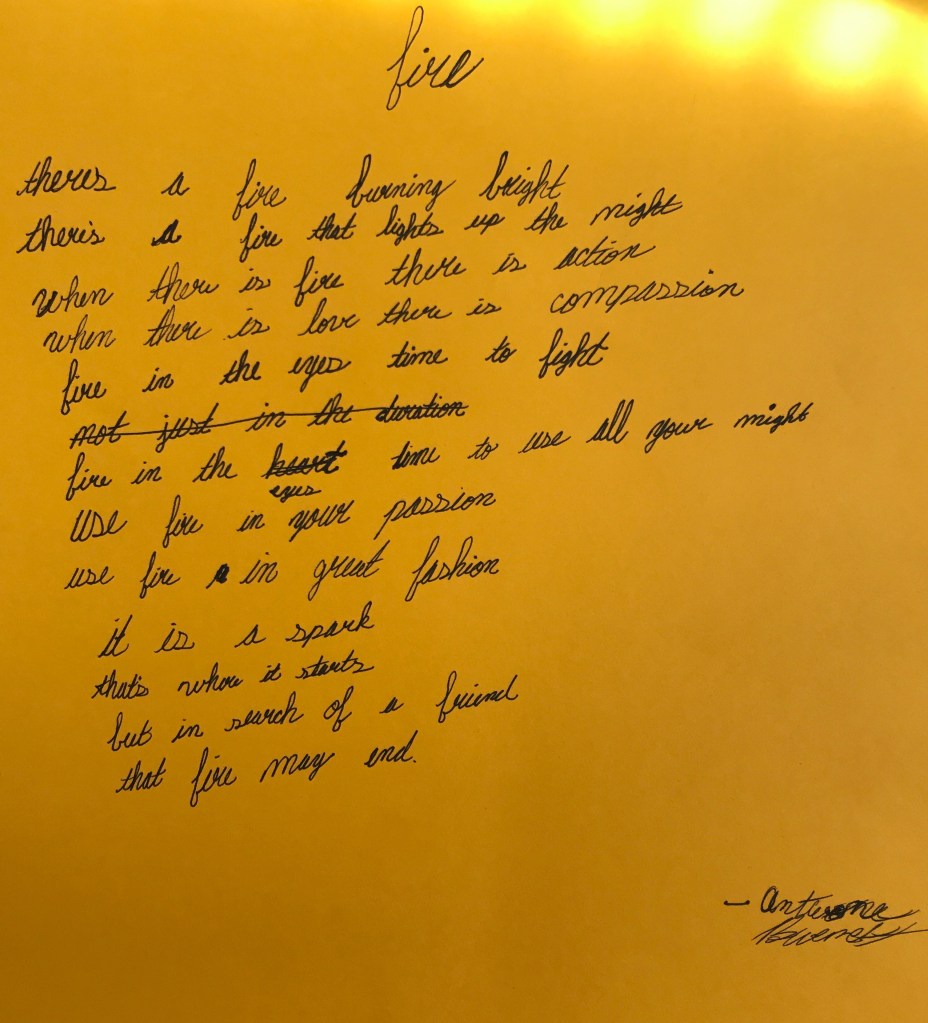 fire
theres a fire burning bright
there's a fire that lights up the night
when there is fire there is action
when there is love there is compassion
fire in the eyes time to fight
not just in the duration
fire in the heart time to use all your might
eyes
use fire in your passion
use fire in great fashion
it is a spark
that's where it starts
but in search of a friend
that fire may end.
-